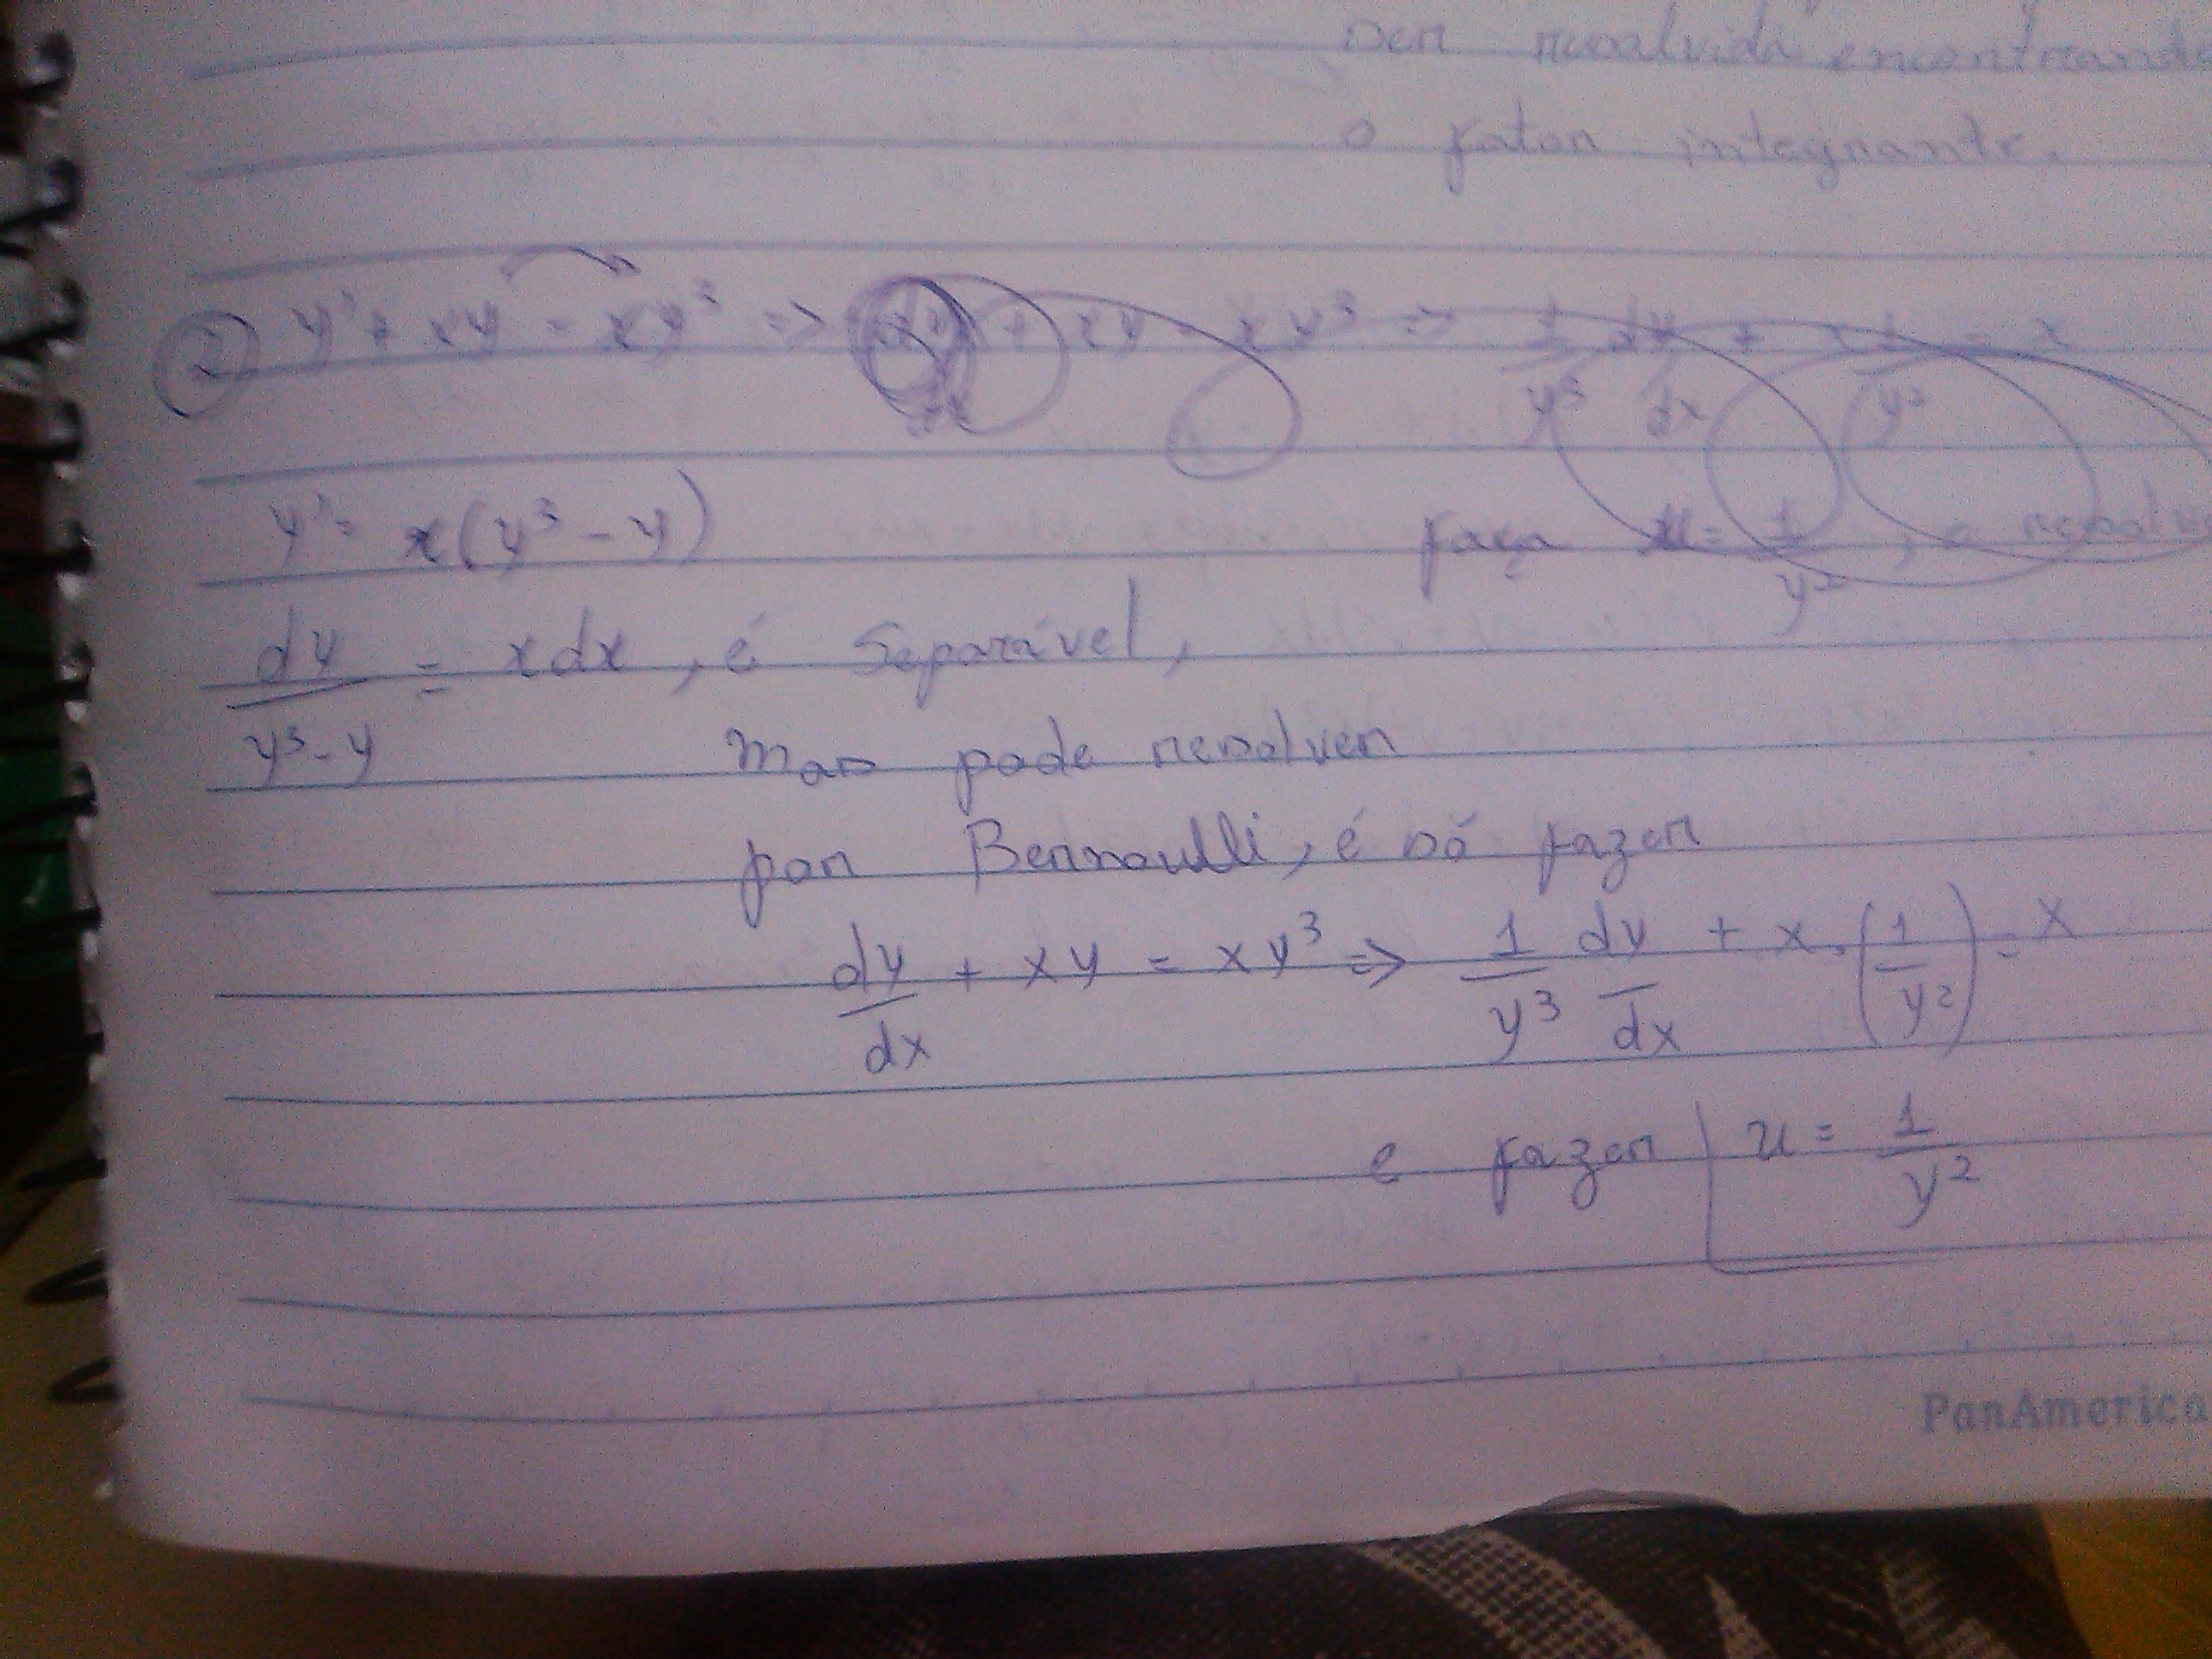 ser resolvida encontrando
o fator integrante.
2) y' + xy = xy³ => dy/dx + xy = xy³ => 1/y³ dy/dx + x 1/y² = x
y' = x(y³ - y)
faça u = 1/y², e
dy/(y³ - y) = xdx, é Separável,
mas pode resolver
por Bernoulli, é só fazer
dy/dx + xy = xy³ => 1/y³ dy/dx + x.(1/y²) = x
e fazer u = 1/y²
PanAmerica